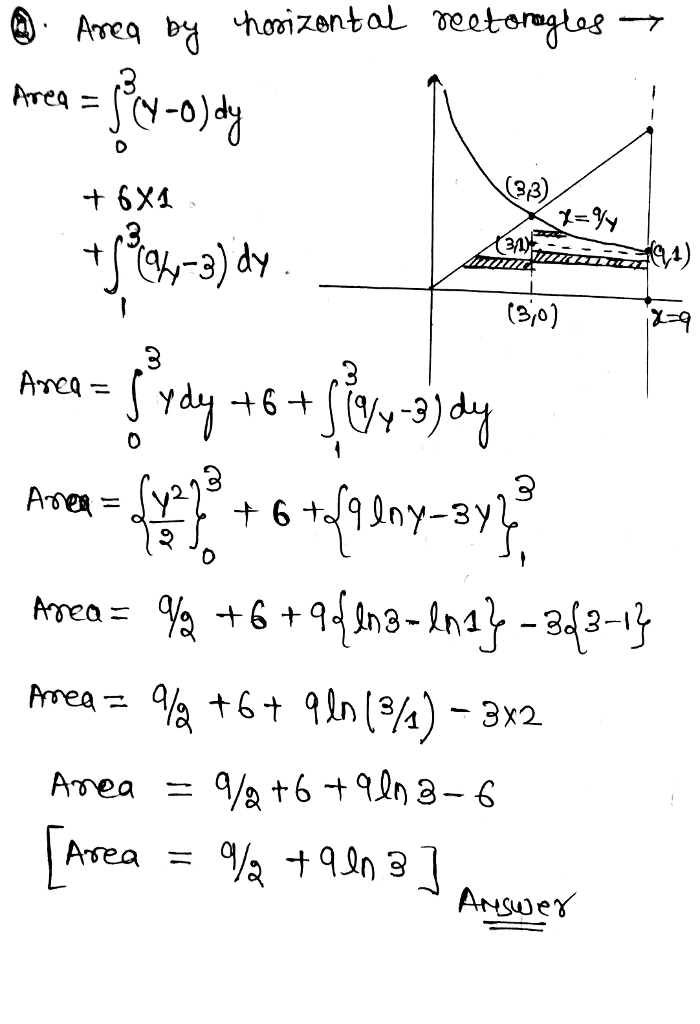 ②. Area by horizontal rectangles →
Area = ∫₀³ (y-0) dy
+ 6×1
+ ∫₁³ (9/y - 3) dy
(3,3)
x = 9/y
(3,1)
(9,1)
(3,0)
x=9
Area = ∫₀³ y dy + 6 + ∫₁³ (9/y - 3) dy
Area = {y²/2}₀³ + 6 + {9 ln y - 3y}₁³
Area = 9/2 + 6 + 9{ln3 - ln1} - 3{3-1}
Area = 9/2 + 6 + 9 ln(3/1) - 3×2
Area = 9/2 + 6 + 9 ln 3 - 6
[Area = 9/2 + 9 ln 3]
Answer